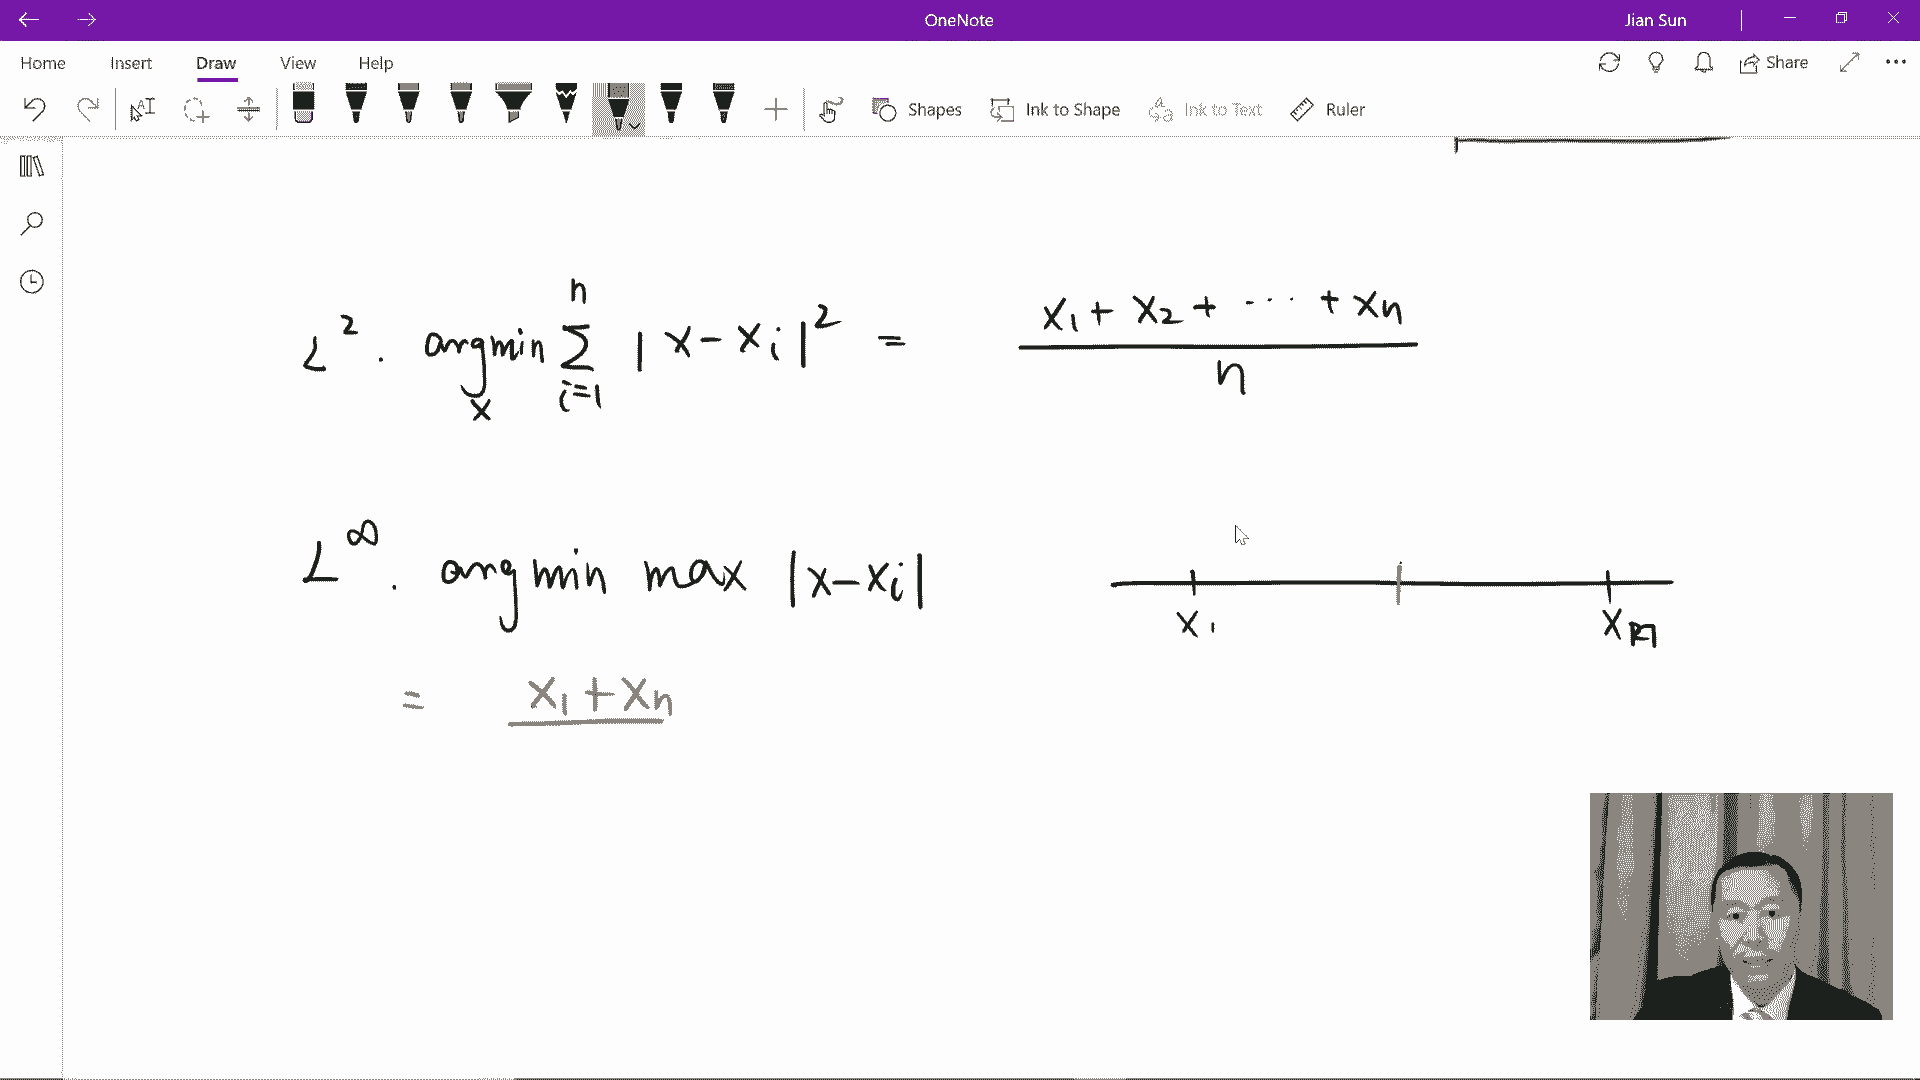 OneNote
Jian Sun
Home Insert Draw View Help
Share
Shapes Ink to Shape Ink to Text Ruler
L². argmin_x ∑_{i=1}^{n} |x-x_i|² = (x₁+x₂+···+x_n)/n
L^∞. argmin max |x-x_i|
x₁
= x₁+x_n